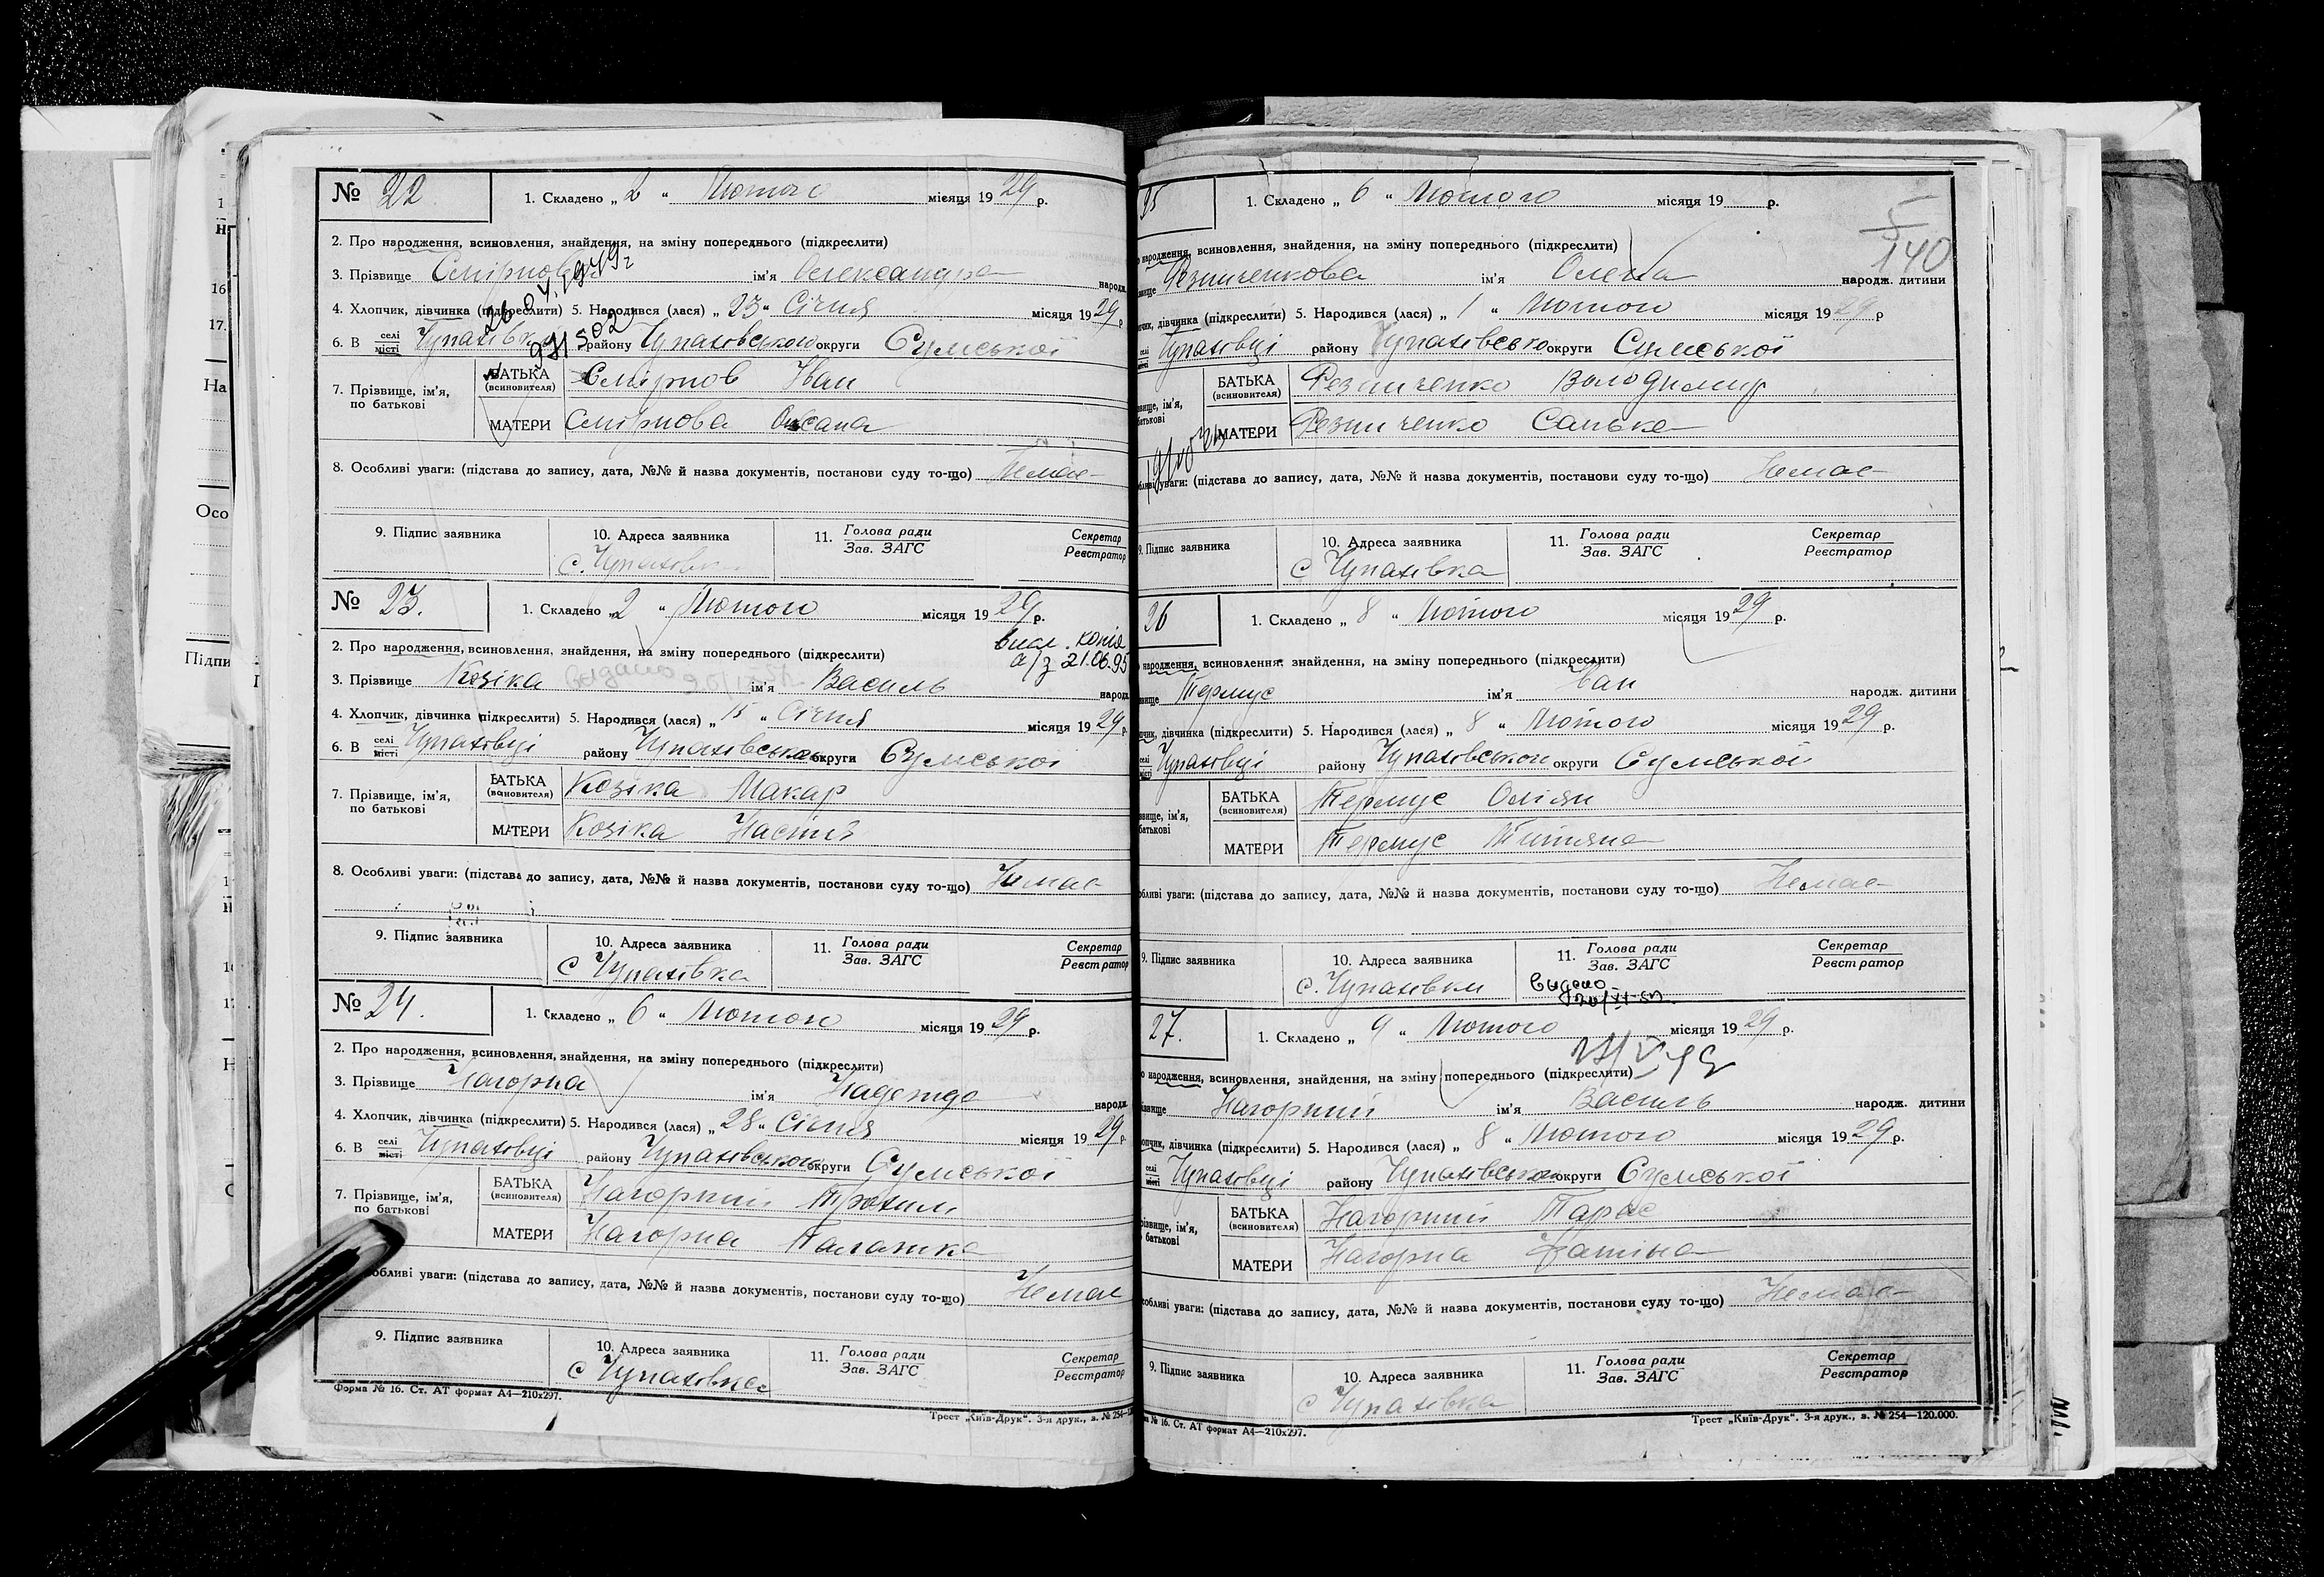 № 22. 1. Складено „ 2 “ Лютого місяця 19 29 р.
2. Про народження, всиновлення, знайдення, на зміну попереднього (підкреслити)
3. Прізвище Смірнова ім'я Олександра народж.
4. Хлопчик, дівчинка (підкреслити) 5. Народився (лася) „ 23 “ Січня місяця 19 29 р
6. В селі місті Чупахівка району Чупахівського округи Сумської
7. Прізвище, ім'я, по батькові
БАТЬКА (всиновителя) Смірнов Іван
МАТЕРИ Смірнова Оксана
8. Особливі уваги: (підстава до запису, дата, №№ й назва документів, постанови суду то-що) Немає
9. Підпис заявника 10. Адреса заявника 11. Голова ради Зав. ЗАГС Секретар Реєстратор
с. Чупахівка
№ 23. 1. Складено „ 2 “ Лютого місяця 19 29 р.
висл. копія
а/з 21.06.95
2. Про народження, всиновлення, знайдення, на зміну попереднього (підкреслити)
3. Прізвище Козіка ім'я Василь народж.
4. Хлопчик, дівчинка (підкреслити) 5. Народився (лася) „ 15 “ Січня місяця 19 29 р.
6. В селі місті Чупахівці району Чупахівського округи Сумської
7. Прізвище, ім'я, по батькові
БАТЬКА (всиновителя) Козіка Макар
МАТЕРИ Козіка Настя
8. Особливі уваги: (підстава до запису, дата, №№ й назва документів, постанови суду то-що) Немає
9. Підпис заявника 10. Адреса заявника 11. Голова ради Зав. ЗАГС Секретар Реєстратор
с Чупахівка
№ 24. 1. Складено „ 6 “ Лютого місяця 19 29 р.
2. Про народження, всиновлення, знайдення, на зміну попереднього (підкреслити)
3. Прізвище Нагорна ім'я Надежда народж.
4. Хлопчик, дівчинка (підкреслити) 5. Народився (лася) „ 28 “ Січня місяця 19 29 р.
6. В селі місті Чупахівці району Чупахівського округи Сумської
7. Прізвище, ім'я, по батькові
БАТЬКА (всиновителя) Нагорний Трохим
МАТЕРИ Нагорна Палажка
обливі уваги: (підстава до запису, дата, №№ й назва документів, постанови суду то-що) Немає
9. Підпис заявника 10. Адреса заявника 11. Голова ради Зав. ЗАГС Секретар Реєстратор
с Чупахівка
Форма № 16. Ст. АТ формат А4—210х297.
Трест „Київ-Друк“. 3-я друк., з. № 254—12
25 1. Складено „ 6 “ Лютого місяця 19 р.
140
народження, всиновлення, знайдення, на зміну попереднього (підкреслити)
Резниченкова ім'я Олена народж. дитини
дівчинка (підкреслити) 5. Народився (лася) „ 1 “ Лютого місяця 19 29 р
селі місті Чупахівці району Чупахівсько округи Сумської
БАТЬКА (всиновителя) Резниченко Володимир
МАТЕРИ Резниченко Санька
уваги: (підстава до запису, дата, №№ й назва документів, постанови суду то-що) Немає
9. Підпис заявника 10. Адреса заявника 11. Голова ради Зав. ЗАГС Секретар Реєстратор
с Чупахівка
26 1. Складено „ 8 “ Лютого місяця 19 29 р.
народження, всиновлення, знайдення, на зміну попереднього (підкреслити)
Термус ім'я Іван народж. дитини
дівчинка (підкреслити) 5. Народився (лася) „ 8 “ Лютого місяця 19 29 р.
селі місті Чупахівці району Чупахівського округи Сумської
БАТЬКА (всиновителя) Термус Оліян
МАТЕРИ Термус Титяна
обливі уваги: (підстава до запису, дата, №№ й назва документів, постанови суду то-що) Немає
9. Підпис заявника 10. Адреса заявника 11. Голова ради Зав. ЗАГС Секретар Реєстратор
с. Чупахівки
Выдано
27. 1. Складено „ 9 “ Лютого місяця 19 29 р.
народження, всиновлення, знайдення, на зміну попереднього (підкреслити)
Нагорний ім'я Василь народж. дитини
дівчинка (підкреслити) 5. Народився (лася) „ 8 “ Лютого місяця 19 29 р.
селі місті Чупахівці району Чупахівського округи Сумської
БАТЬКА (всиновителя) Нагорний Тарас
МАТЕРИ Нагорна
особливі уваги: (підстава до запису, дата, №№ й назва документів, постанови суду то-що) Немає
9. Підпис заявника 10. Адреса заявника 11. Голова ради Зав. ЗАГС Секретар Реєстратор
с Чупахівка
№ 16. Ст. АТ формат А4—210х297.
Трест „Київ-Друк“. 3-я друк., з. № 254—120.000.